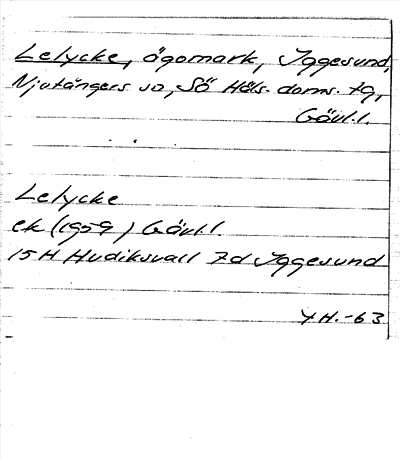 Lelycke, ägomark, Iggesund,
Njutångers sn, Sö Häls. doms. tg,
Gävl.l.
Lelycke
ek (1959) Gävl.l
15H Hudiksvall 7d Iggesund
YH.-63